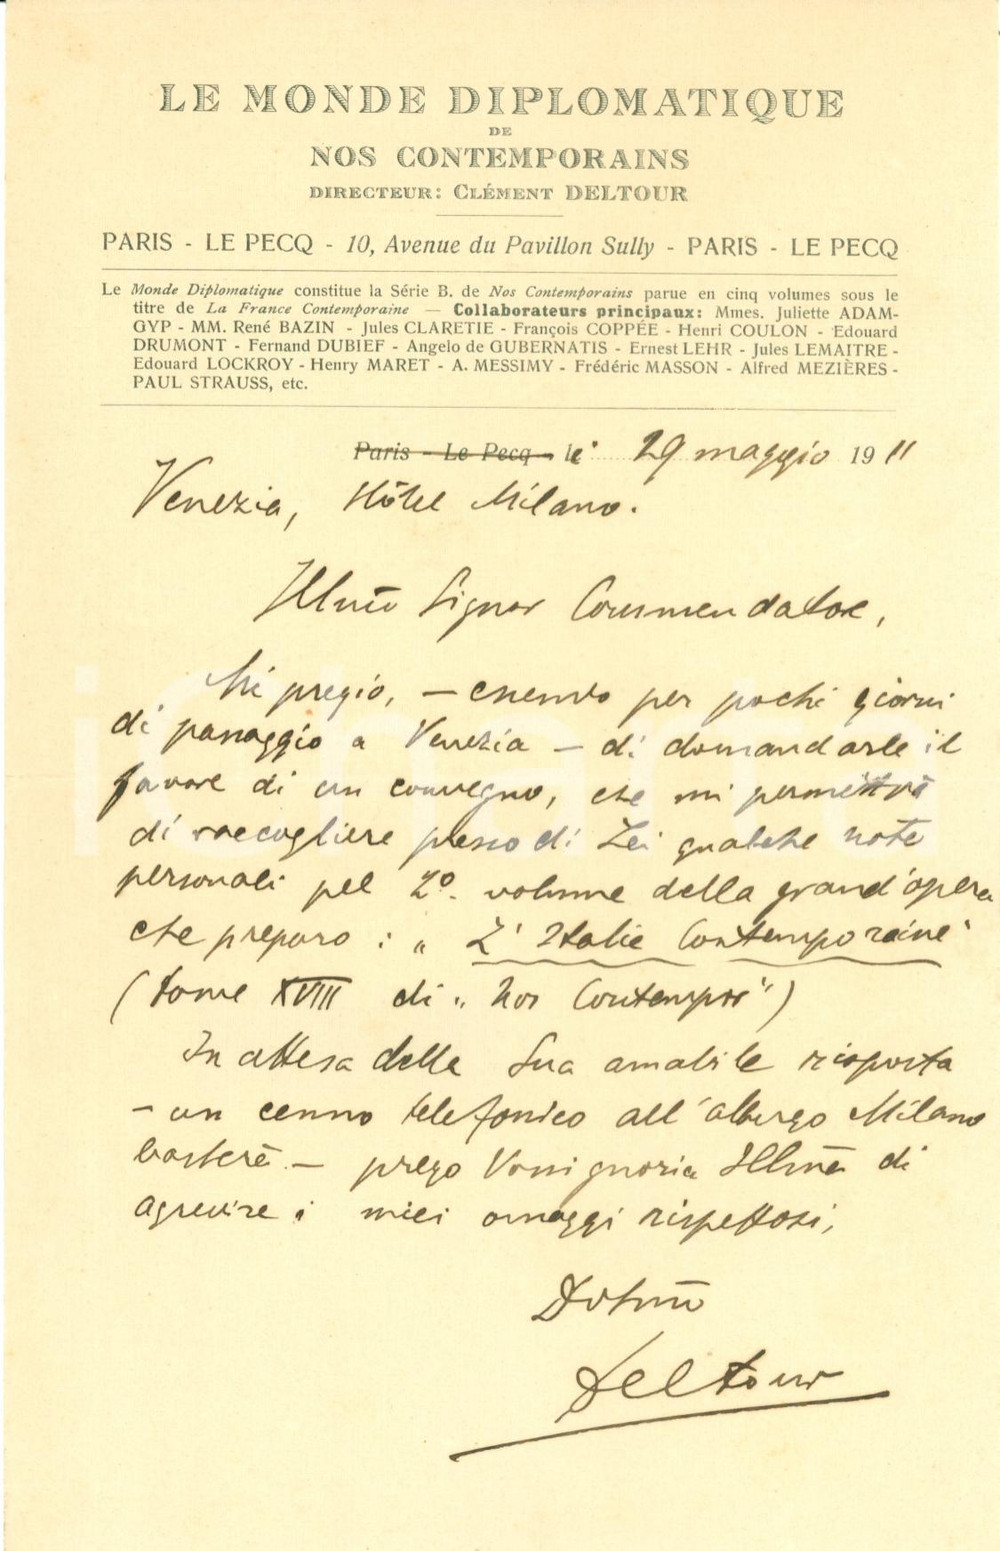 LE MONDE DIPLOMATIQUE
DE
NOS CONTEMPORAINS
DIRECTEUR: CLÉMENT DELTOUR
PARIS - LE PECQ - 10, Avenue du Pavillon Sully - PARIS - LE PECQ
Le Monde Diplomatique constitue la Série B. de Nos Contemporains parue en cinq volumes sous le
titre de La France Contemporaine — Collaborateurs principaux: Mmes. Juliette ADAM-
GYP - MM. René BAZIN - Jules CLARETIE - François COPPÉE - Henri COULON - Edouard
DRUMONT - Fernand DUBIEF - Angelo de GUBERNATIS - Ernest LEHR - Jules LEMAITRE -
Edouard LOCKROY - Henry MARET - A. MESSIMY - Frédéric MASSON - Alfred MEZIÈRES -
PAUL STRAUSS, etc.
Paris - Le Pecq - le 29 maggio 1911
Venezia, Hôtel Milano.
Illmo Signor Commendatore,
Mi pregio, — essendo per pochi giorni
di passaggio a Venezia — di domandarle il
favore di un convegno, che mi permetterà
di raccogliere presso di Lei qualche note
personali pel 2º. volume della grand'opera
che preparo : "L'Italie Contemporaine"
(tome XVIII di "Nos Contempor")
In attesa della Sua amabile risposta
— un cenno telefonico all'albergo Milano
basterà — prego Vossignoria Illma di
agredire i miei omaggi rispettosi,
Devmo
Deltour